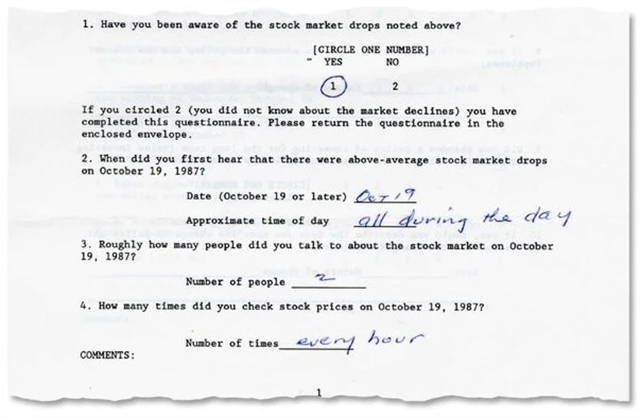 1. Have you been aware of the stock market drops noted above?
[CIRCLE ONE NUMBER]
YES NO
1 2
If you circled 2 (you did not know about the market declines) you have
completed this questionnaire. Please return the questionnaire in the
enclosed envelope.
2. When did you first hear that there were above-average stock market drops
on October 19, 1987?
Date (October 19 or later) Oct 19
Approximate time of day all during the day
3. Roughly how many people did you talk to about the stock market on October
19, 1987?
Number of people 2
4. How many times did you check stock prices on October 19, 1987?
Number of times every hour
COMMENTS:
1